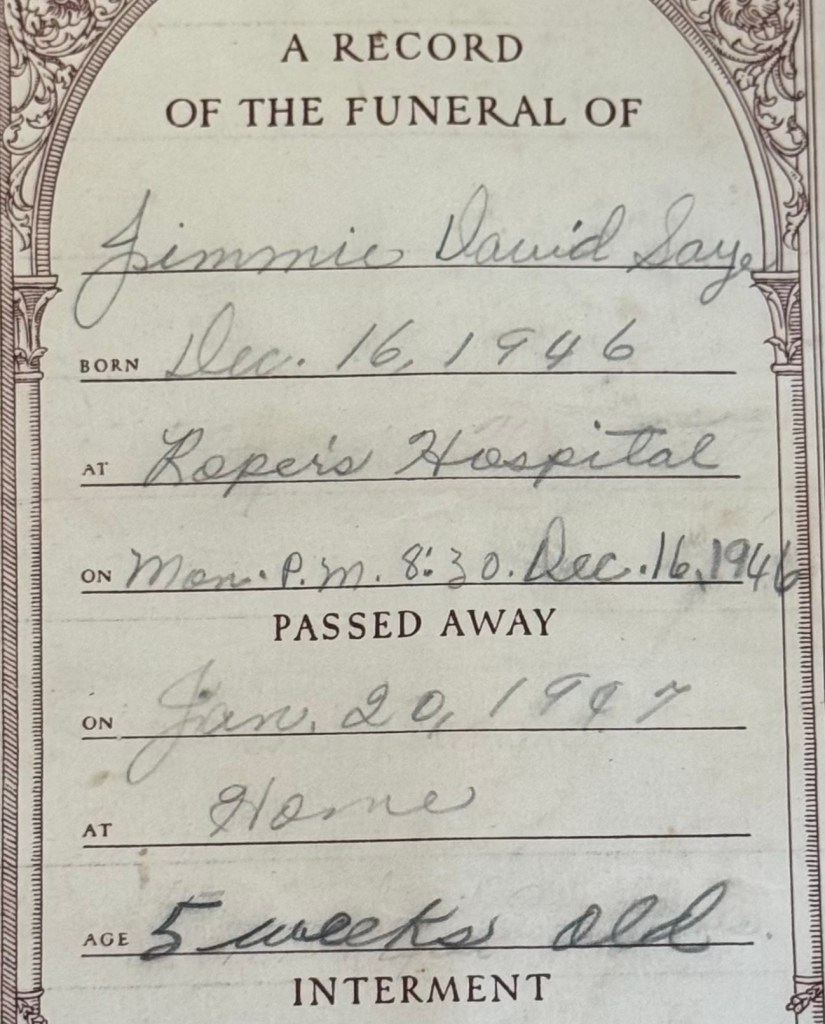 A RECORD
OF THE FUNERAL OF
Jimmie David Saye
BORN Dec. 16, 1946
AT Roper's Hospital
ON Mon. P.M. 8:30. Dec. 16, 1946
PASSED AWAY
ON Jan. 20, 1947
AT Home
AGE 5 weeks old
INTERMENT